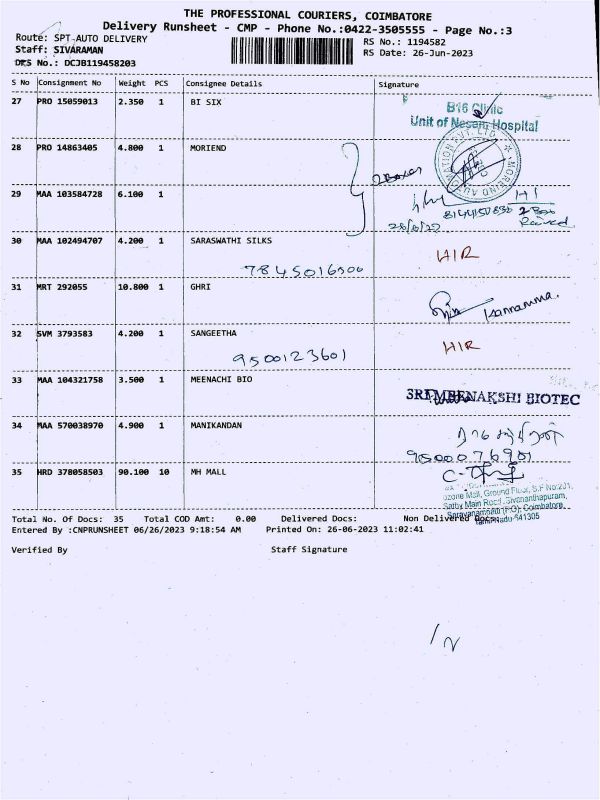 THE PROFESSIONAL COURIERS, COIMBATORE
Delivery Runsheet - CMP - Phone No.:0422-3505555 - Page No.:3
Route: SPT-AUTO DELIVERY
RS No.: 1194582
Staff: SIVARAMAN
RS Date: 26-Jun-2023
DRS No.: DCJB119458203
S No Consignment No Weight PCS Consignee Details Signature
27 PRO 15059013 2.350 1 BI SIX
B16 Clinic
Unit of Nesam Hospital
28 PRO 14863405 4.800 1 MORIEND
2 Boxes
29 MAA 103584728 6.100 1
30 MAA 102494707 4.200 1 SARASWATHI SILKS
HIR
7845016500
31 MRT 292055 10.800 1 GHRI
Kannamma.
32 SVM 3793583 4.200 1 SANGEETHA
HIR
9500123601
33 MAA 104321758 3.500 1 MEENACHI BIO
SRI MEENAKSHI BIOTEC
34 MAA 570038970 4.900 1 MANIKANDAN
9500076901
35 HRD 378058503 90.100 10 MH MALL
ozone Mall, Ground Floor, S.F No:201,
Sathy Main Road, Sivananthapuram,
Saravanampatti (P.O), Coimbatore,
Tamilnadu-641305
Total No. Of Docs: 35 Total COD Amt: 0.00 Delivered Docs: Non Delivered Docs:
Entered By :CNPRUNSHEET 06/26/2023 9:18:54 AM Printed On: 26-06-2023 11:02:41
Verified By Staff Signature